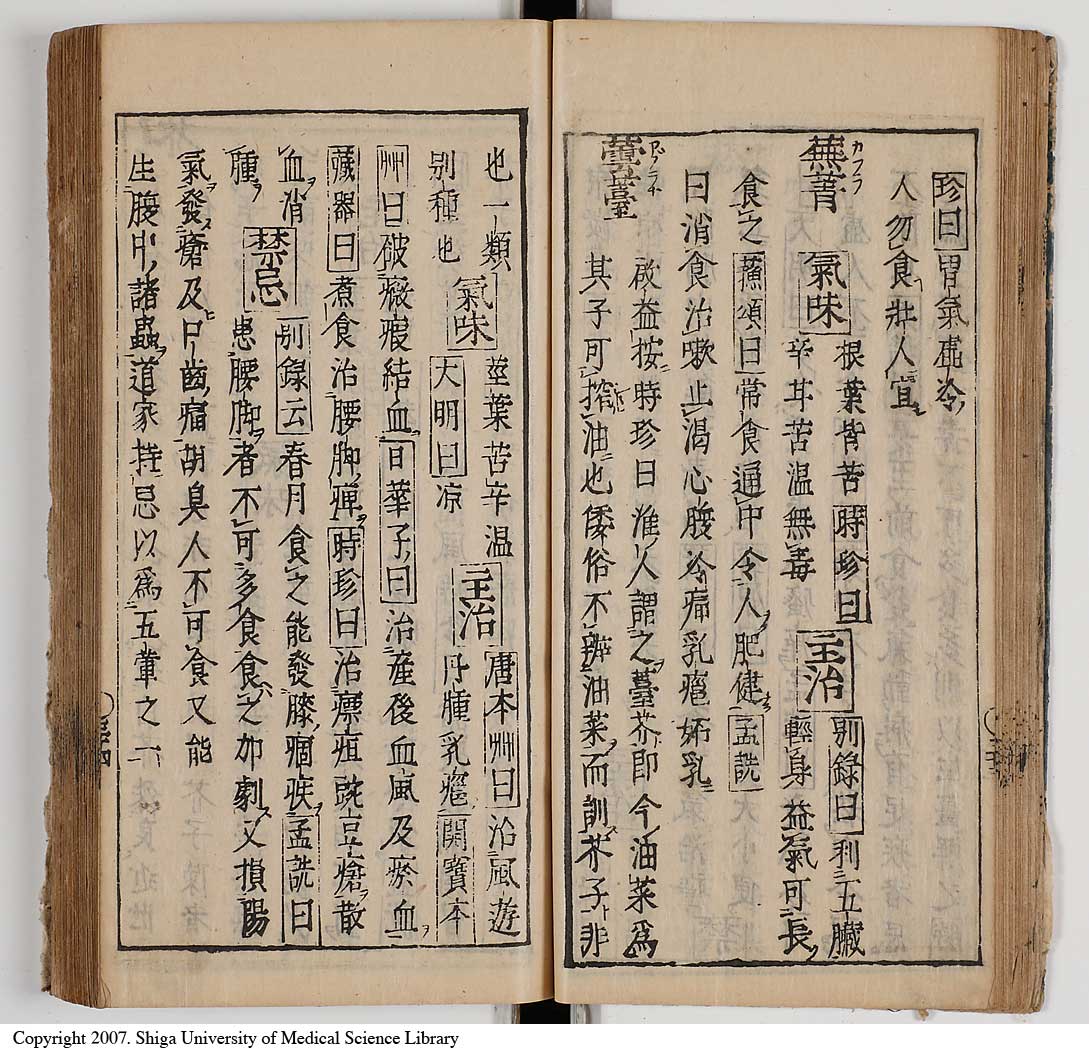 珍曰胃氣虛冷
人勿食壯人宜
カフラ
蕪菁
氣味
根葉皆苦時珍曰
辛甘苦溫無毒
主治
別錄曰利五臟
輕身益氣可長
食之蘓頌曰常食通中令人肥健孟詵
曰消食治嗽止渴心腹冷痛乳癰妬乳
蕓薹
啟益按時珍曰淮人謂之薹芥即今油菜爲
其子可搾油也倭俗不辨油菜而訓芥子非
也一類
別種也
氣味
莖葉苦辛溫
大明曰凉
主治
唐本艸曰治風遊
丹腫乳癰開寶本
艸曰破癥瘕結血日華子曰治產後血風及瘀血
藏器曰煮食治腰脚痺時珍曰治瘭疽豌豆瘡散
血消
腫
禁忌
別錄云春月食之能發膝痼疾孟詵曰
患腰脚者不可多食食之加劇又損陽
氣發瘡及口齒痛胡臭人不可食又能
生腹中諸蟲道家持忌以爲五葷之一
Copyright 2007. Shiga University of Medical Science Library